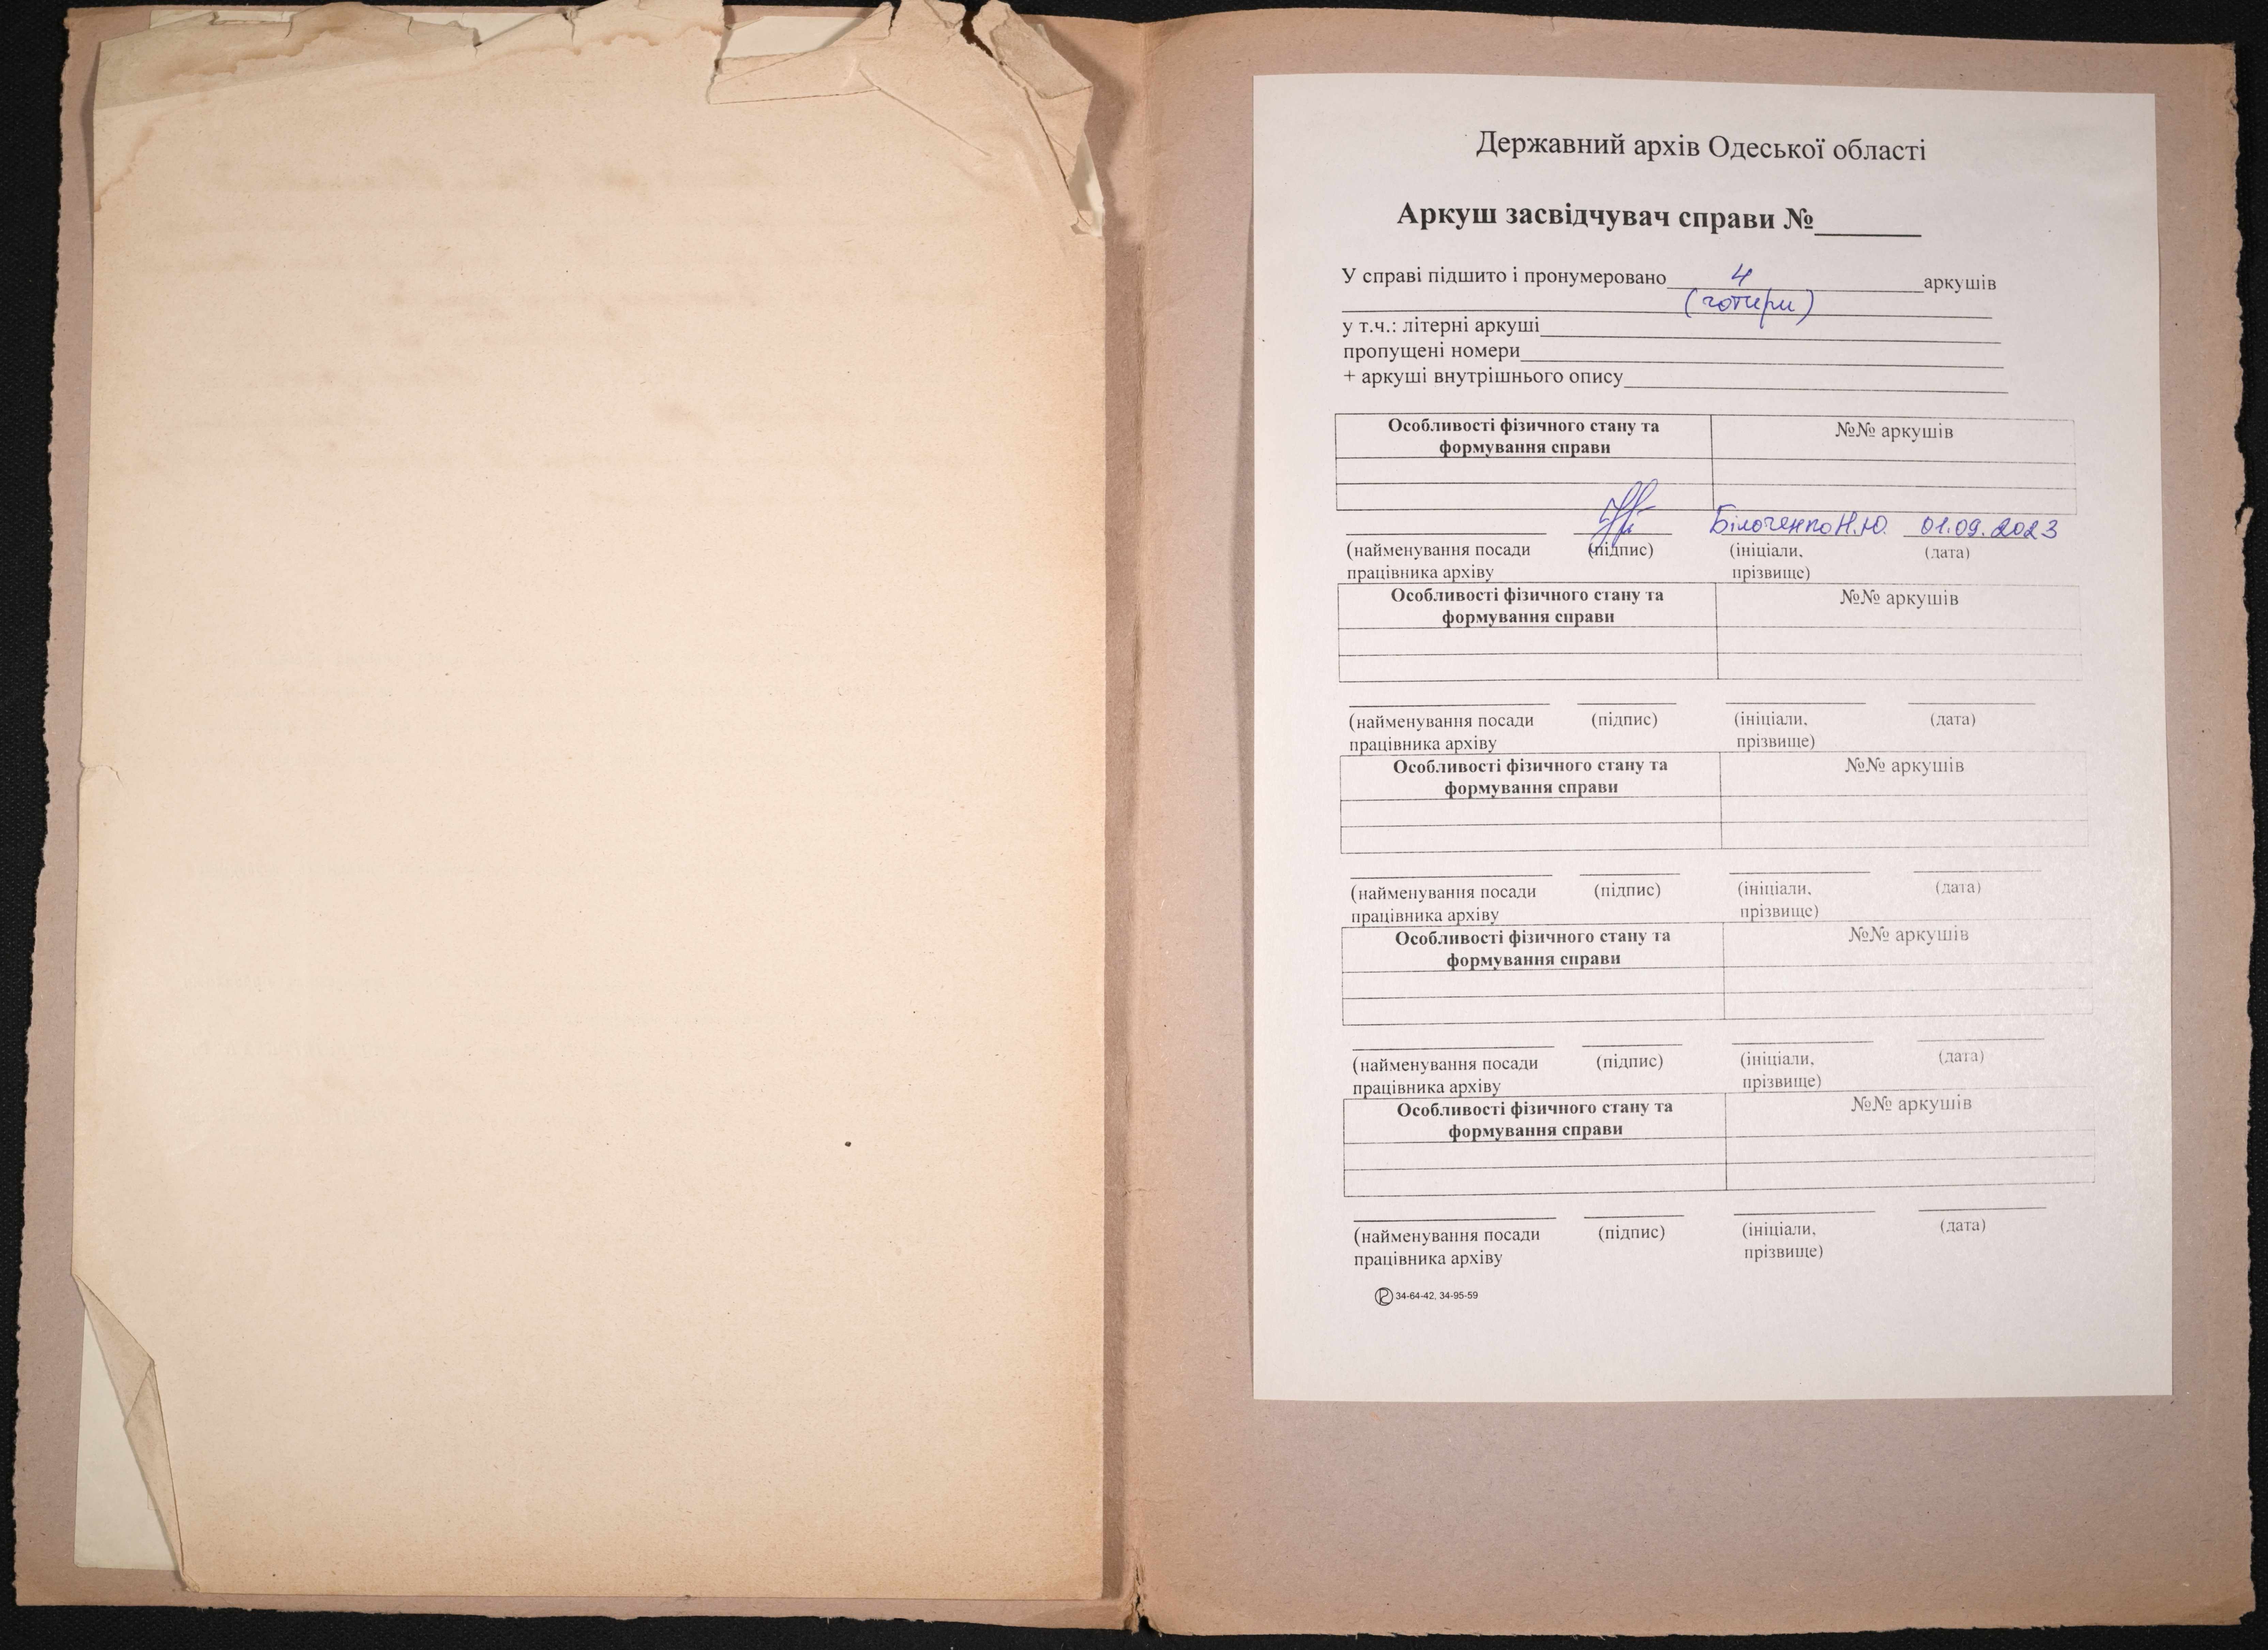 Державний архів Одеської області
Аркуш засвідчувач справи №_______
У справі підшито і пронумеровано 4 аркушів
(чотири)
у т.ч.: літерні аркуші
пропущені номери
+ аркуші внутрішнього опису
Особливості фізичного стану та №№ аркушів
формування справи
Білоченко Н.Ю. 01.09.2023
(найменування посади (підпис) (ініціали, (дата)
працівника архіву прізвище)
Особливості фізичного стану та №№ аркушів
формування справи
(найменування посади (підпис) (ініціали, (дата)
працівника архіву прізвище)
Особливості фізичного стану та №№ аркушів
формування справи
(найменування посади (підпис) (ініціали, (дата)
працівника архіву прізвище)
Особливості фізичного стану та №№ аркушів
формування справи
(найменування посади (підпис) (ініціали, (дата)
працівника архіву прізвище)
Особливості фізичного стану та №№ аркушів
формування справи
(найменування посади (підпис) (ініціали, (дата)
працівника архіву прізвище)
34-64-42, 34-95-59